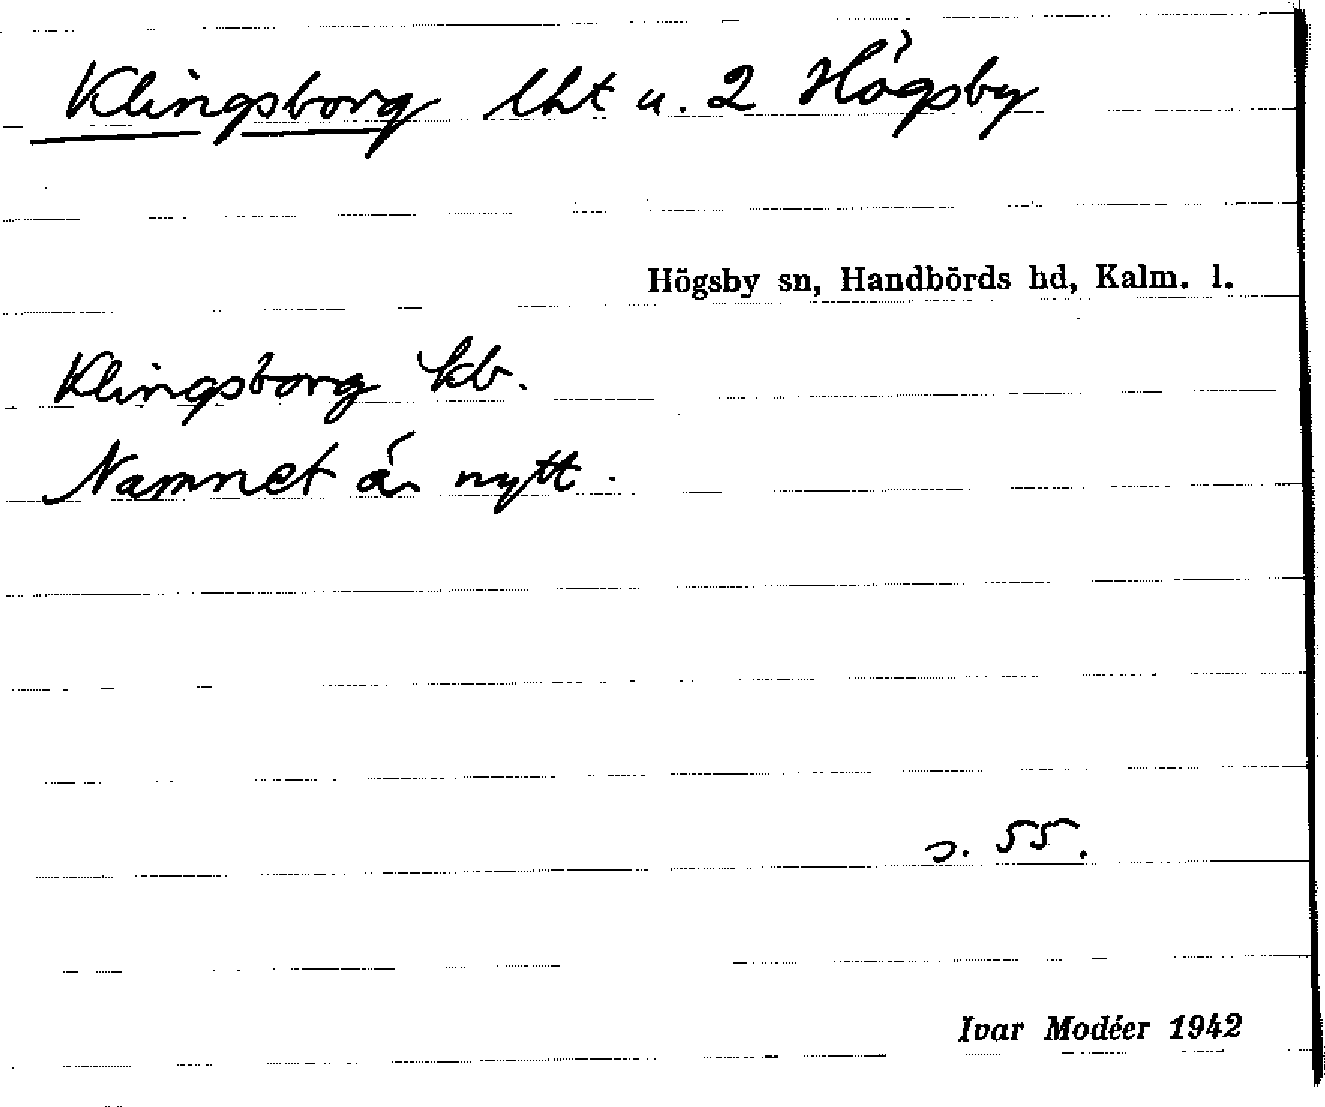 Klingsborg lht u. 2 Högsby
Högsby sn, Handbörds hd, Kalm. l.
Klingsborg kb.
Namnet är nytt.
s. 55.
Ivar Modéer 1942